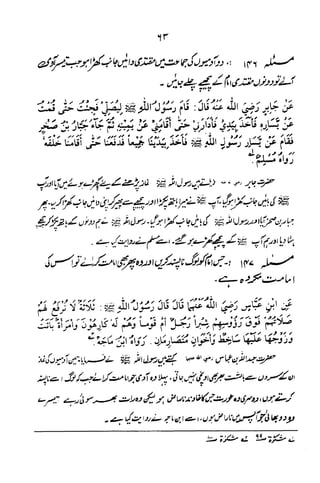 ۶۳
مسئلہ ۱۴۶ :۔ دو آدمیوں کی جماعت میں مقتدی دائیں جانب کھڑا ہو جب تیسرا آدمی
آئے تو دونوں مقتدی امام کے پیچھے چلے جائیں ۔
عَنْ جَابِرٍ رَضِيَ اللهُ عَنْهُ قَالَ : قَامَ رَسُولُ اللهِ ﷺ لِيُصَلِّيَ فَجِئْتُ حَتَّى قُمْتُ
عَنْ يَسَارِهِ فَأَخَذَ بِيَدِي فَأَدَارَنِي حَتَّى أَقَامَنِي عَنْ يَمِينِهِ ثُمَّ جَاءَ جَبَّارُ بْنُ صَخْرٍ
فَقَامَ عَنْ يَسَارِ رَسُولِ اللهِ ﷺ فَأَخَذَ بِيَدَيْنَا جَمِيعًا فَدَفَعَنَا حَتَّى أَقَامَنَا خَلْفَهُ
رَوَاهُ مُسْلِمٌ
حضرت جابر فرماتے ہیں رسول اللہ ﷺ نماز پڑھنے کے لئے کھڑے ہوئے میں آیا اور آپ
ﷺ کی بائیں جانب کھڑا ہو گیا، آپ ﷺ نے میرا ہاتھ پکڑا اور پیچھے سے پھیر کر اپنی دائیں جانب کھڑا کر دیا۔ پھر
جبار بن صخر آیا اور رسول اللہ ﷺ کی بائیں جانب کھڑا ہو گیا، رسول اللہ ﷺ نے ہم دونوں کے ہاتھ پکڑ کر پیچھے
ہٹا دیا اور ہم آپ ﷺ کے پیچھے کھڑے ہو گئے ، اسے مسلم نے روایت کیا ہے ۔
مسئلہ ۱۴۷ :۔ جس امام کو لوگ ناپسند کریں اور وہ پھر بھی امامت کرائے تو اس کی
امامت مکروہ ہے ۔
عَنِ ابْنِ عَبَّاسٍ رَضِيَ اللهُ عَنْهُمَا قَالَ قَالَ رَسُولُ اللهِ ﷺ : ثَلَاثَةٌ لَا تُرْفَعُ لَهُمْ
صَلَاتُهُمْ فَوْقَ رُؤُوسِهِمْ شِبْرًا رَجُلٌ أَمَّ قَوْمًا وَهُمْ لَهُ كَارِهُونَ وَامْرَأَةٌ بَاتَتْ
وَزَوْجُهَا عَلَيْهَا سَاخِطٌ وَأَخَوَانِ مُتَصَارِمَانِ . رَوَاهُ ابْنُ مَاجَه
حضرت عبداللہ بن عباس کہتے ہیں رسول اللہ ﷺ نے فرمایا تین آدمیوں کی نماز
ان کے سروں سے بالشت بھر بھی اونچی نہیں جاتی ، پہلا وہ آدمی جو امامت کرائے جب کہ لوگ اسے ناپسند
کرتے ہوں ، دوسری وہ عورت جس کا خاوند ناراض ہو لیکن وہ رات بھر سوئی رہے تیسرے
وہ دو بھائی جو آپس میں ناراض ہوں ، اسے ابن ماجہ نے روایت کیا ہے ۔